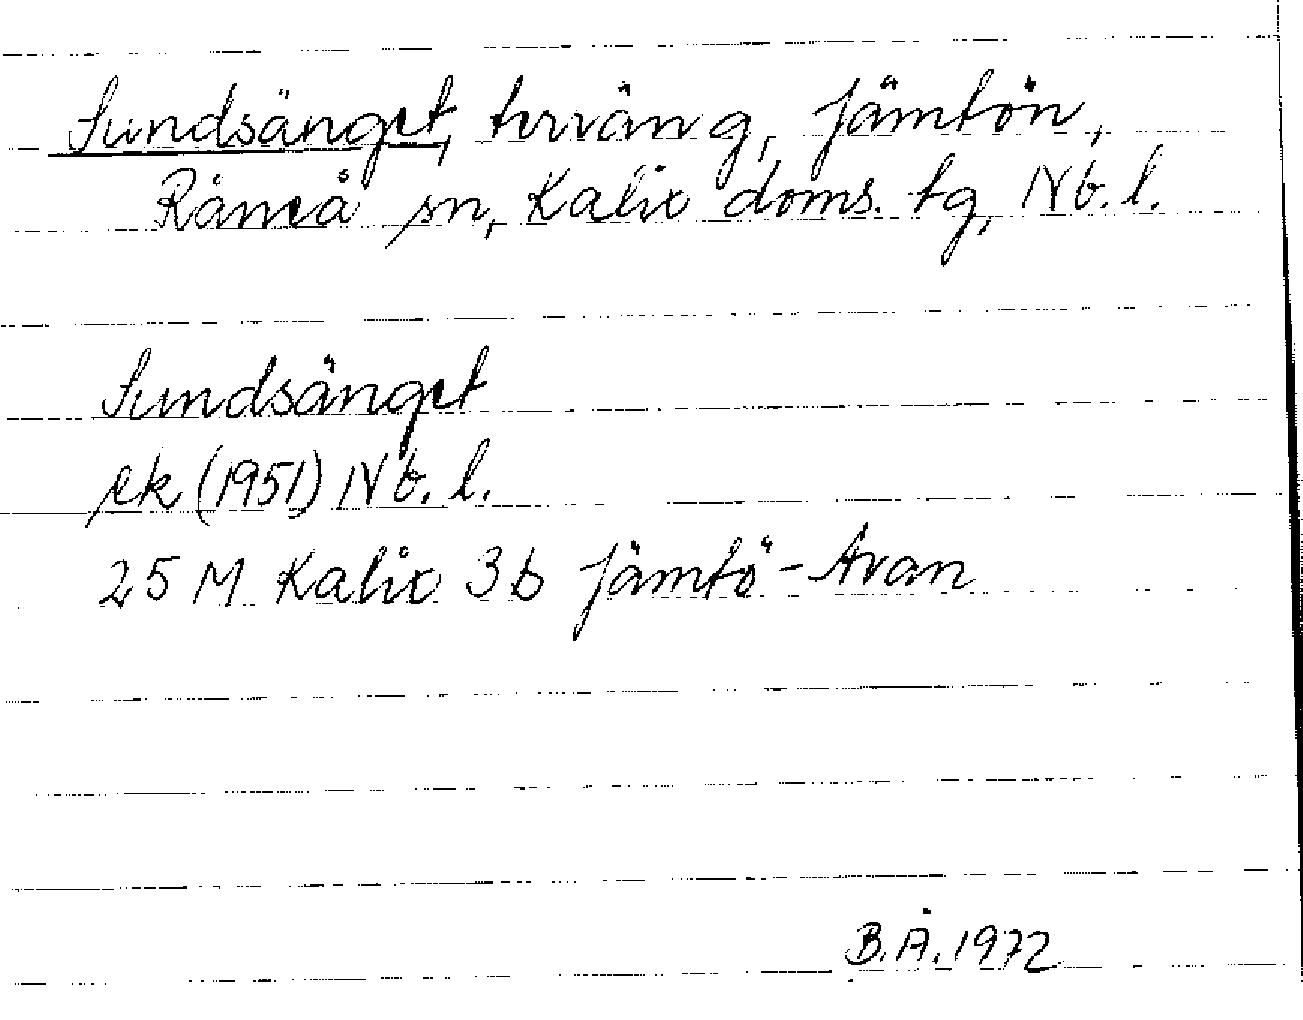 Sundsänget, terräng, Jämtön,
Råneå sn, Kalix doms. tg, Nb. l.
Sundsänget
ek (1951) Nb. l.
25 M Kalix 3b Jämtö-Avan
B.Å. 1972